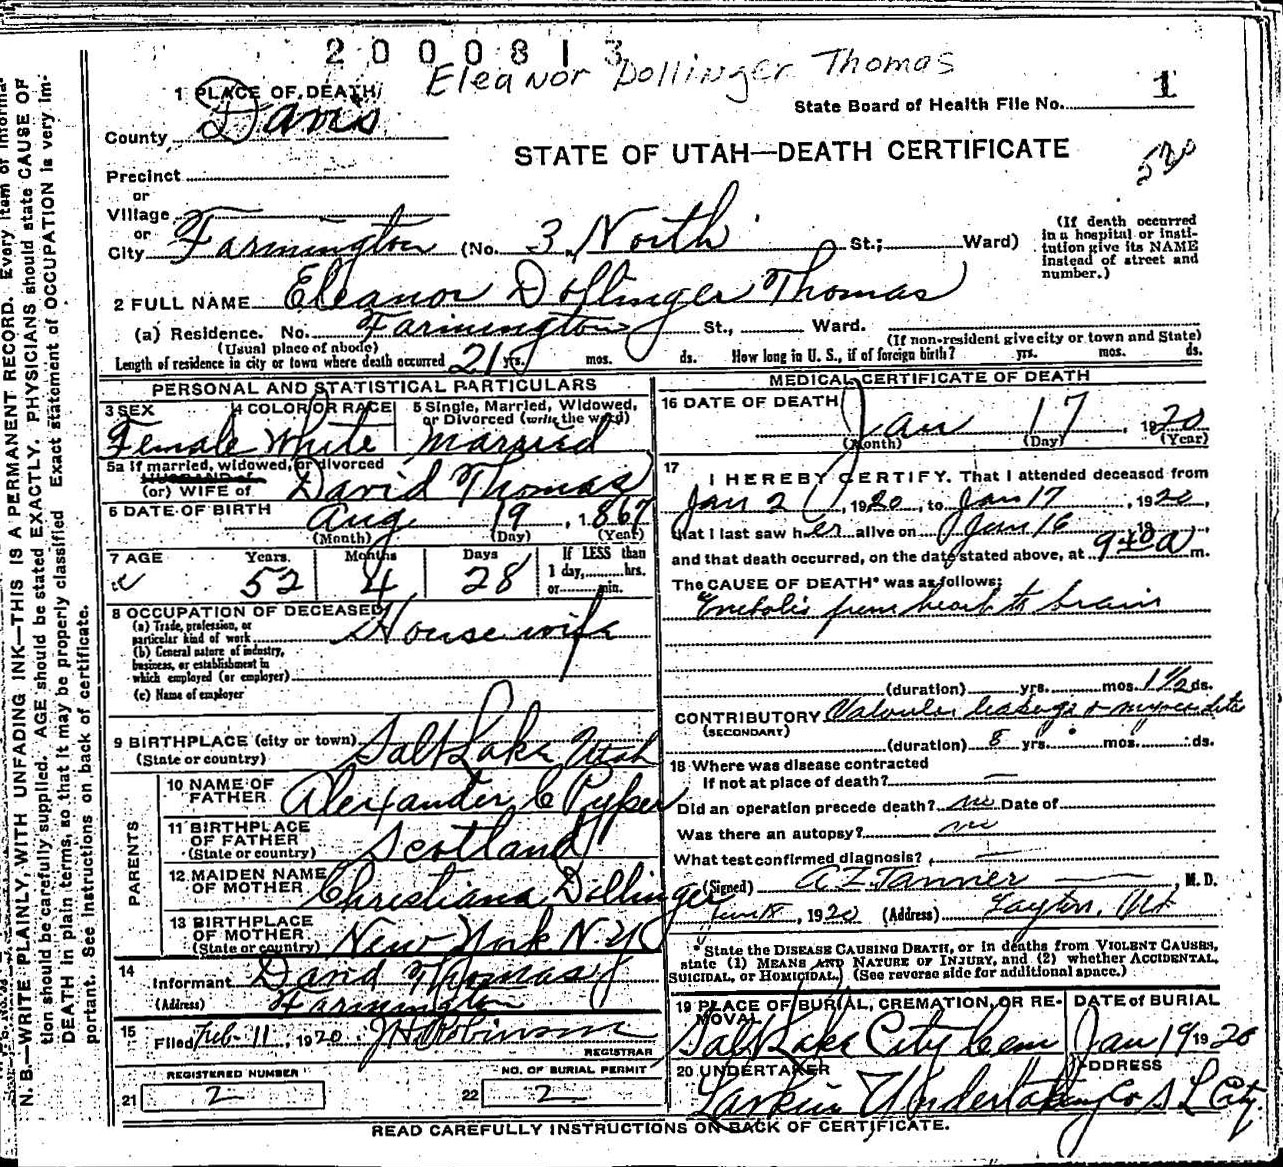 2000813
Eleanor Dollinger Thomas
1 PLACE OF DEATH
State Board of Health File No. 1
County Davis
STATE OF UTAH—DEATH CERTIFICATE
530
Precinct
or
Village
or
City Farmington (No. 3 North St.; Ward)
(If death occurred in a hospital or institution give its NAME instead of street and number.)
2 FULL NAME Eleanor Dollinger Thomas
(a) Residence. No. Farmington St., Ward.
(Usual place of abode) (If non-resident give city or town and State)
Length of residence in city or town where death occurred 21 yrs. mos. ds. How long in U. S., if of foreign birth? yrs. mos. ds.
PERSONAL AND STATISTICAL PARTICULARS
3 SEX 4 COLOR OR RACE 5 Single, Married, Widowed, or Divorced (write the word)
Female White Married
5a If married, widowed, or divorced
HUSBAND of
(or) WIFE of David Thomas
6 DATE OF BIRTH Aug. 19, 1867
(Month) (Day) (Year)
7 AGE Years Months Days If LESS than
52 4 28 1 day, hrs.
or min.
8 OCCUPATION OF DECEASED
(a) Trade, profession, or
particular kind of work Housewife
(b) General nature of industry,
business, or establishment in
which employed (or employer)
(c) Name of employer
9 BIRTHPLACE (city or town) Salt Lake Utah
(State or country)
PARENTS
10 NAME OF FATHER Alexander C Pyper
11 BIRTHPLACE OF FATHER Scotland
(State or country)
12 MAIDEN NAME OF MOTHER Christiana Dollinger
13 BIRTHPLACE OF MOTHER New York N.Y.
(State or country)
14
Informant David Thomas
(Address) Farmington
15
Filed Feb 11, 1920 J H Robinson
REGISTRAR
REGISTERED NUMBER NO. OF BURIAL PERMIT
21 2 22 2
MEDICAL CERTIFICATE OF DEATH
16 DATE OF DEATH Jan 17, 1920
(Month) (Day) (Year)
17
I HEREBY CERTIFY. That I attended deceased from
Jan 2, 1920, to Jan 17, 1920,
that I last saw her alive on Jan 16 19
and that death occurred, on the date stated above, at 940 a m.
The CAUSE OF DEATH* was as follows:
Embolis from heart to brain
(duration) yrs. mos. 1 1/2 ds.
CONTRIBUTORY Valvular leakage & myocarditis
(SECONDARY)
(duration) 8 yrs. mos. ds.
18 Where was disease contracted
If not at place of death? —
Did an operation precede death? no Date of
Was there an autopsy? no
What test confirmed diagnosis? —
(Signed) A Z Tanner M. D.
18, 1920 (Address) Layton, Ut
* State the DISEASE CAUSING DEATH, or in deaths from VIOLENT CAUSES,
state (1) MEANS AND NATURE OF INJURY, and (2) whether ACCIDENTAL,
SUICIDAL, or HOMICIDAL. (See reverse side for additional space.)
19 PLACE OF BURIAL, CREMATION, OR REMOVAL DATE of BURIAL
Salt Lake City Cem Jan 19 1920
20 UNDERTAKER ADDRESS
Larkin Undertaking Co S L City
READ CAREFULLY INSTRUCTIONS ON BACK OF CERTIFICATE.
N. B.—WRITE PLAINLY, WITH UNFADING INK—THIS IS A PERMANENT RECORD. Every item of informa-
tion should be carefully supplied. AGE should be stated EXACTLY. PHYSICIANS should state CAUSE OF
DEATH in plain terms, so that it may be properly classified. Exact statement of OCCUPATION is very im-
portant. See instructions on back of certificate.